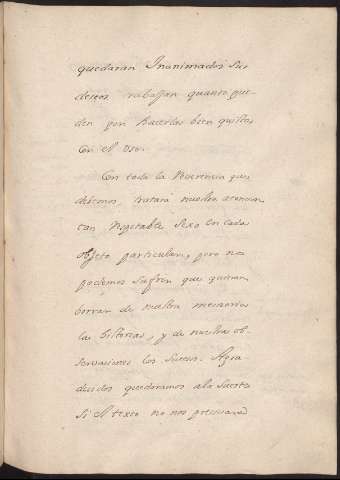 quedaran Inanimados sus
deseos rabajan quanto pue-
den por hacerlas bien quistas
con el uso.
Con toda la Reverencia que
debemos, tratará nuestra atencion
tan respetable sexo en cada
objeto particular, pero no
podemos sufrir que quieran
borrar de nuestra memoria
las historias, y de nuestras ob-
servaciones los sucesos. Agra-
decidos quedaramos a la suerte
si el texto no nos